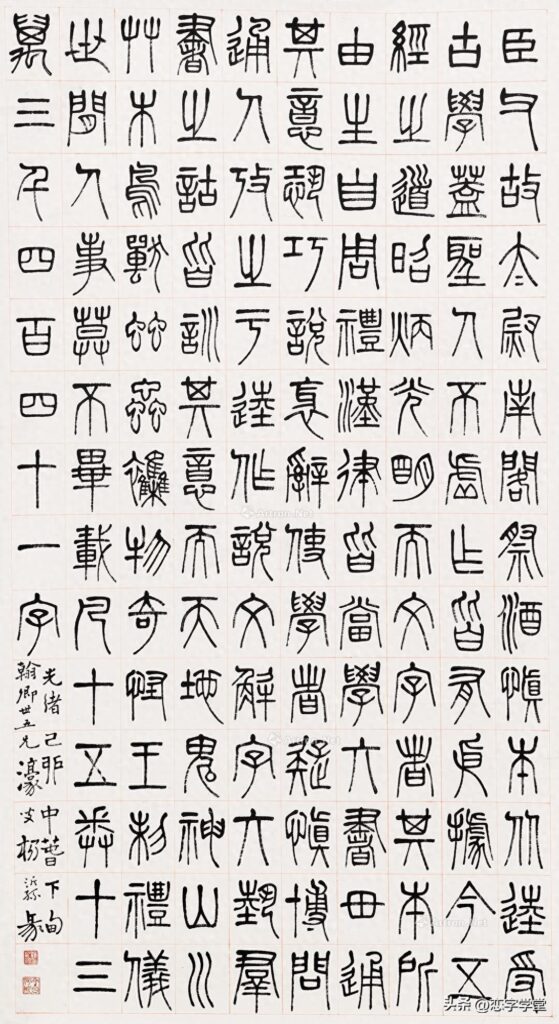 臣父故太尉南閣祭酒慎本从逵受
古學蓋聖人不虛作皆有依據今五
經之道昭炳光明而文字者其本所
由生自周禮漢律皆當學六書毌通
其意恐巧說衺辭使學者疑慎博問
通人攷之于逵作說文解字六藝羣
書之詁皆訓其意而天地鬼神山川
艸木鳥獸䖵蟲雜物奇怪王制禮儀
世間人事莫不畢載凡十五卷十三
萬三千四百四十一字
光緒己卯中暑下旬
翰卿世五兄濠叟楊沂孫篆
Artron.Net
头条 @恋字学堂